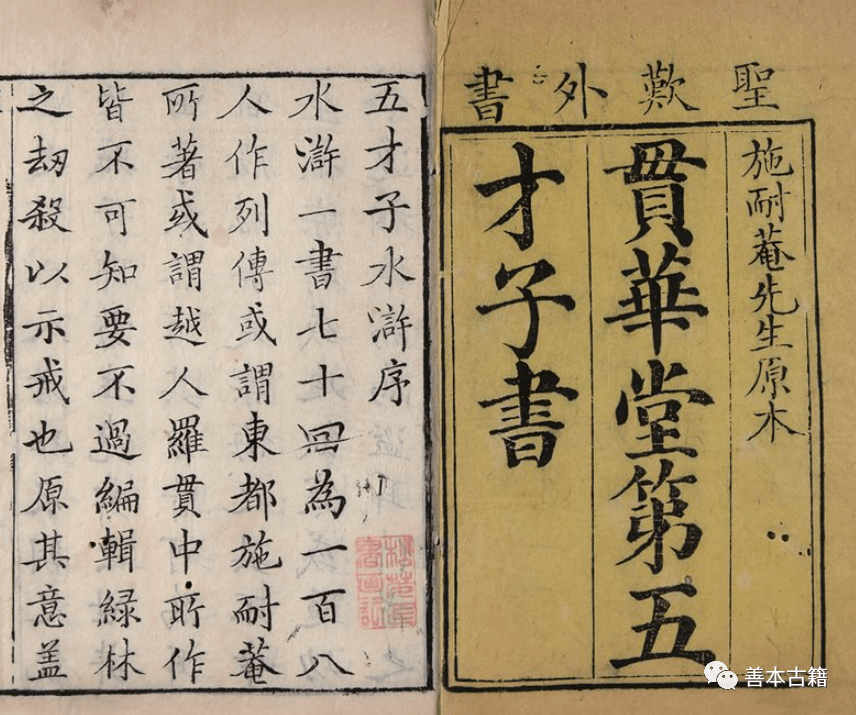 聖歎外書
施耐菴先生原本
貫華堂第五
才子書
五才子水滸序
水滸一書七十回為一百八
人作列傳或謂東都施耐菴
所著或謂越人羅貫中所作
皆不可知要不過編輯綠林
之刼殺以示戒也原其意盖
善本古籍